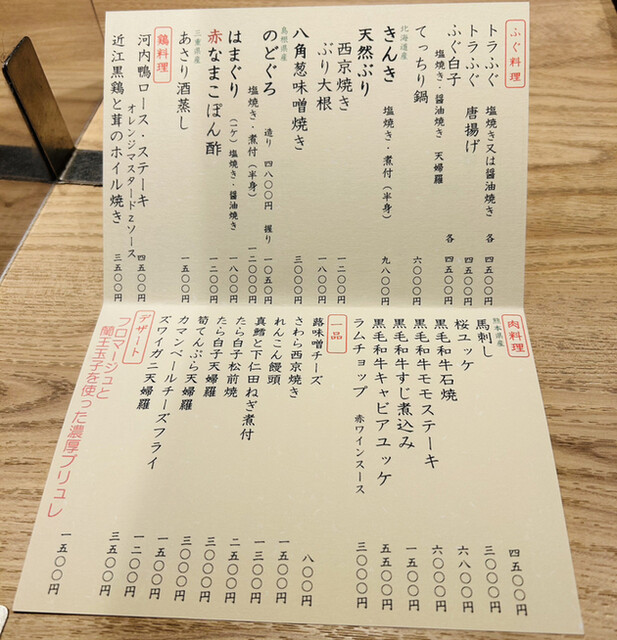 ふぐ料理
トラふぐ 塩焼き又は醤油焼き 各 四五〇〇円
トラふぐ 唐揚げ 四五〇〇円
ふぐ白子 塩焼き・醤油焼き 天婦羅 各 四五〇〇円
てっちり鍋 六〇〇〇円
北海道産
きんき 塩焼き・煮付(半身) 九八〇〇円
天然ぶり
西京焼き 一二〇〇円
ぶり大根 一八〇〇円
八角葱味噌焼き 三〇〇〇円
島根県産
のどぐろ 造り 四八〇〇円 握り 一〇五〇円
塩焼き・煮付(半身) 一二〇〇〇円
はまぐり (二ケ) 塩焼き・醤油焼き 一八〇〇円
赤なまこぽん酢 一二〇〇円
三重県産
あさり酒蒸し 一五〇〇円
鶏料理
河内鴨ロース・ステーキ 四五〇〇円
オレンジマスタードzソース
近江黒鶏と茸のホイル焼き 三五〇〇円
肉料理
熊本県産
馬刺し 四五〇〇円
桜ユッケ 三〇〇〇円
黒毛和牛石焼 六八〇〇円
黒毛和牛モモステーキ 六〇〇〇円
黒毛和牛すじ煮込み 一五〇〇円
黒毛和牛キャビアユッケ 五五〇〇円
ラムチョップ 赤ワインソース 三〇〇〇円
一品
蕗味噌チーズ 八〇〇円
さわら西京焼き 一五〇〇円
れんこん饅頭 一三〇〇円
真鱈と下仁田ねぎ煮付 二五〇〇円
たら白子松前焼 三〇〇〇円
たら白子天婦羅 三〇〇〇円
筍てんぷら天婦羅 一五〇〇円
カマンベールチーズフライ 一二〇〇円
ズワイガニ天婦羅 三五〇〇円
デザート
フロマージュと
蘭王玉子を使った濃厚ブリュレ 一五〇〇円